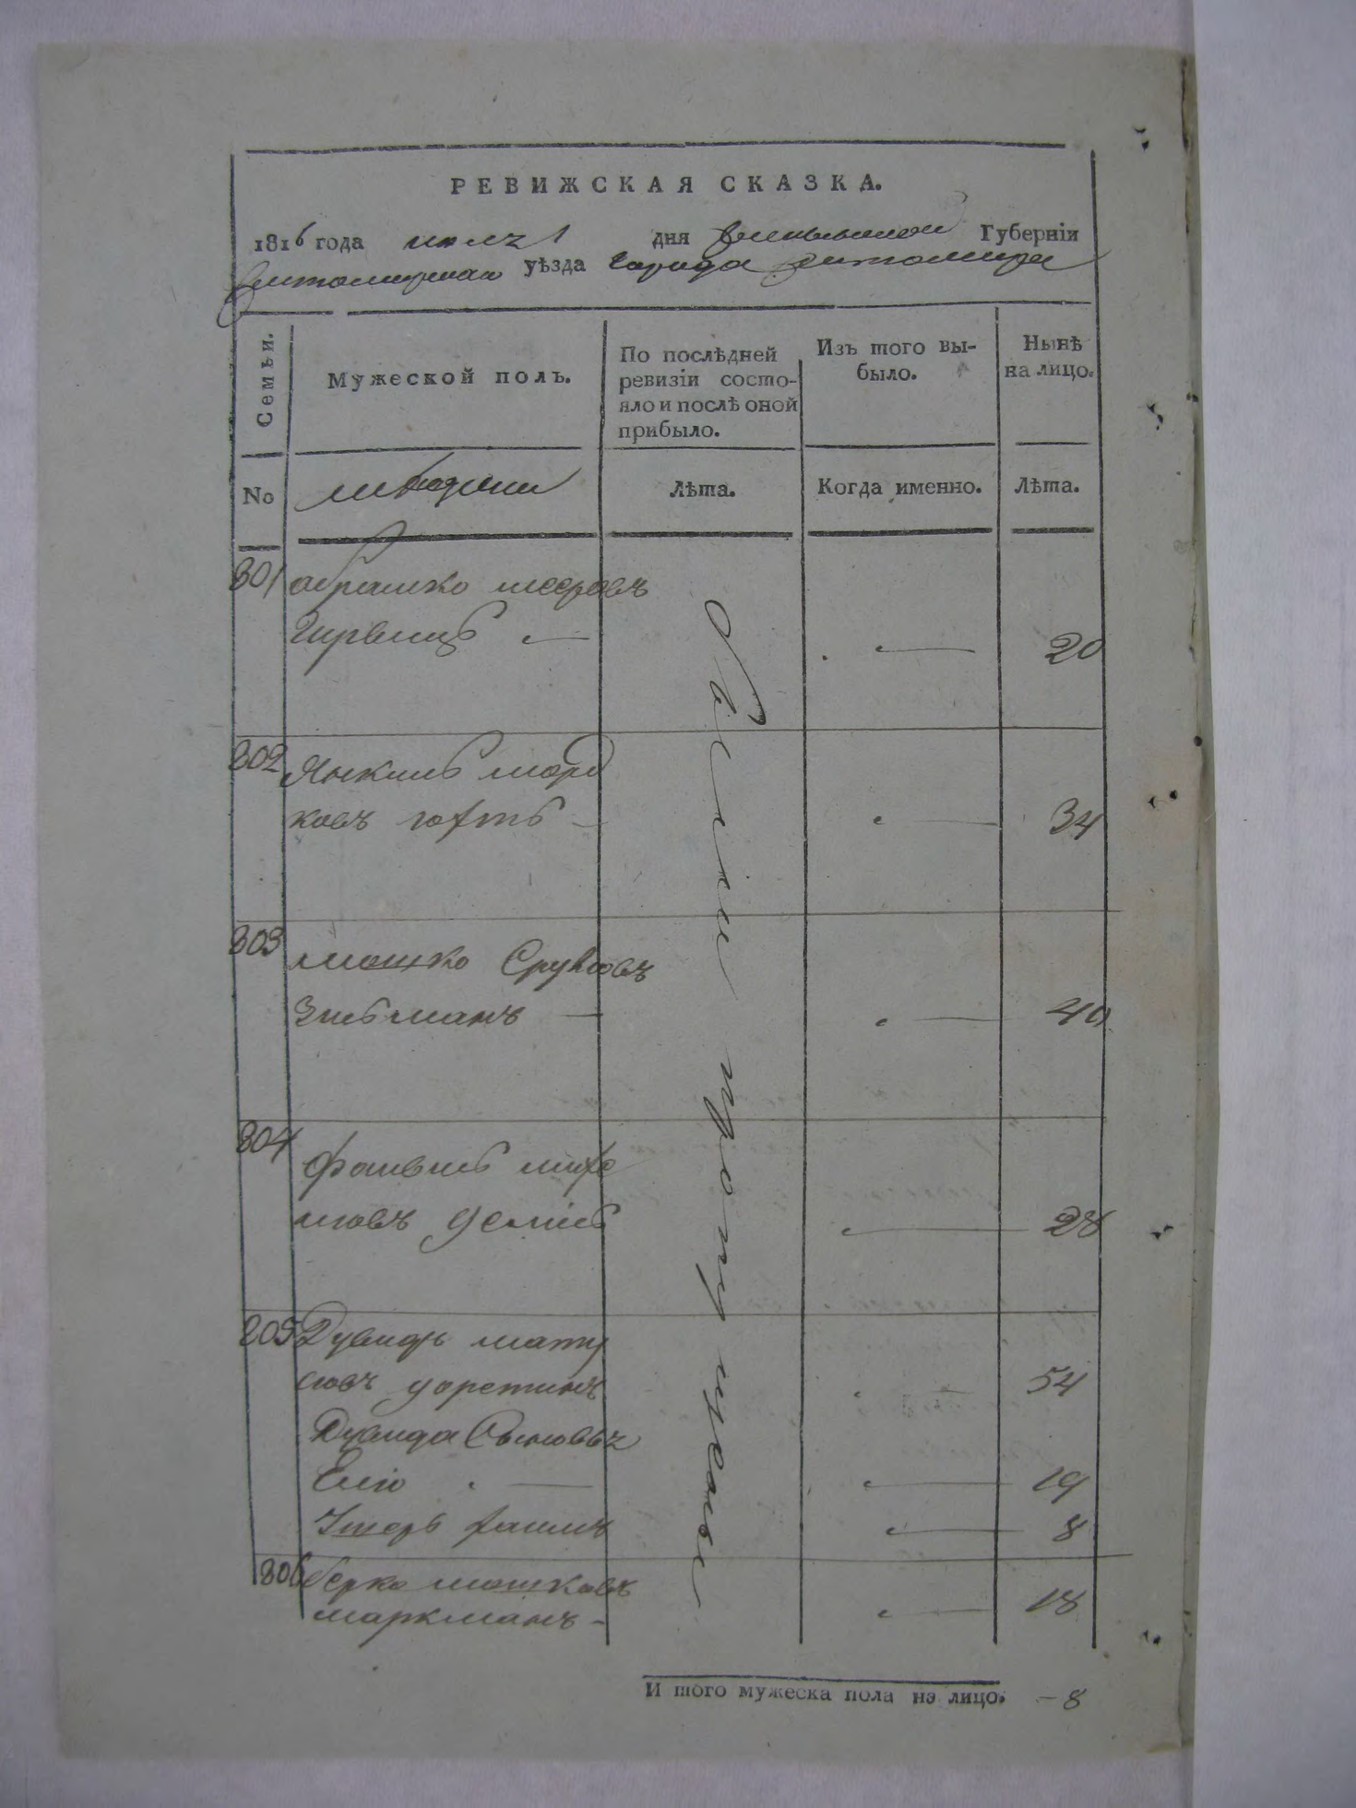 РЕВИЖСКАЯ СКАЗКА.
1816 года июля 1 дня Волынской Губерніи
Житомирскаго уѣзда Города Житомира
Семьи.
Мужеской полъ.
По послѣдней ревизіи состояло и послѣ оной прибыло.
Изъ того выбыло.
Нынѣ на лицо.
No
Лѣта.
Когда именно.
Лѣта.
301 абрамко мееровъ
Гурвицъ — — 20
302 Янкель морд
ковъ — — 34
303 мошко Сруловъ
Зильманъ — — 40
304 Файвель
— 28
205 Дувидъ мату
совъ 54
Дувида Сыновья
Еліо — — 19
8
306 берко мошковъ
маркманъ - — 18
И того мужеска пола на лицо. - 8